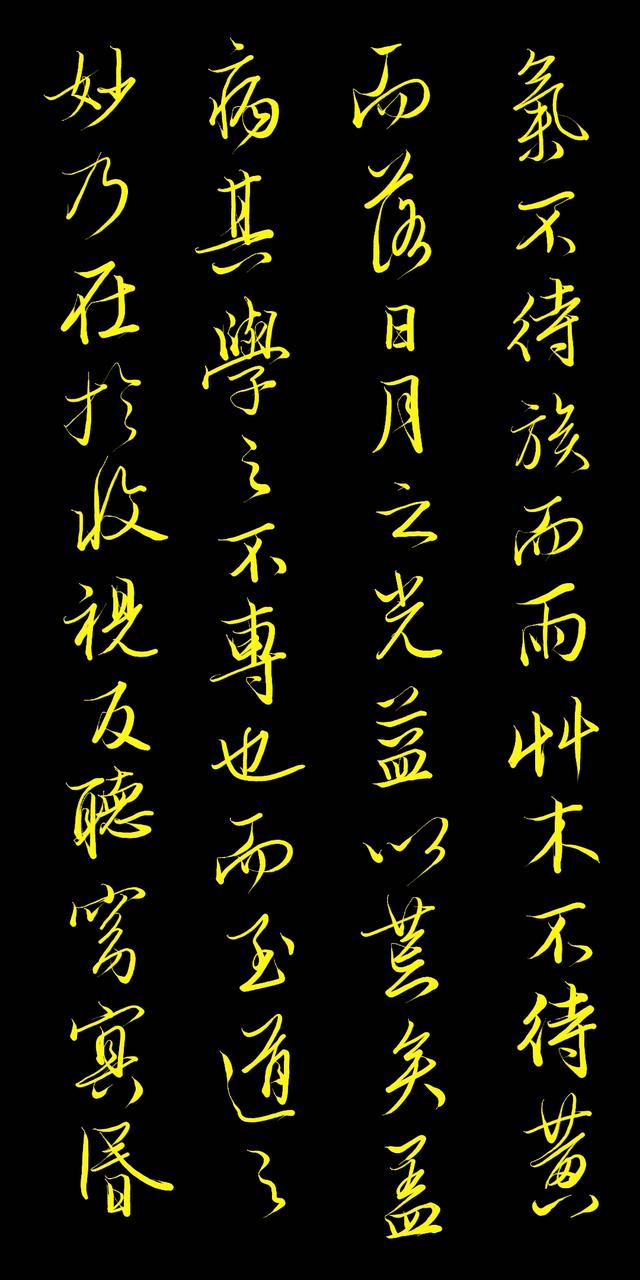 氣不待族而雨艸木不待黃
而落日月之光益以荒矣盖
病其學之不專也而至道之
妙乃在於收視反聽窈冥昬